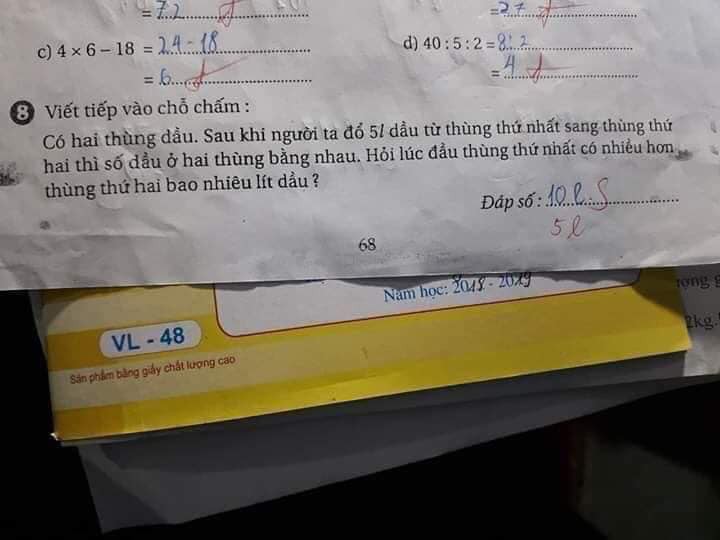 = 72
= 27
c) 4 × 6 – 18 = 24 - 18
= 6
d) 40 : 5 : 2 = 8 : 2
= 4
8 Viết tiếp vào chỗ chấm :
Có hai thùng dầu. Sau khi người ta đổ 5l dầu từ thùng thứ nhất sang thùng thứ
hai thì số dầu ở hai thùng bằng nhau. Hỏi lúc đầu thùng thứ nhất có nhiều hơn
thùng thứ hai bao nhiêu lít dầu ?
Đáp số : 10 l S
5 l
68
Năm học: 2018 - 2019
VL - 48
Sản phẩm bằng giấy chất lượng cao
2kg.